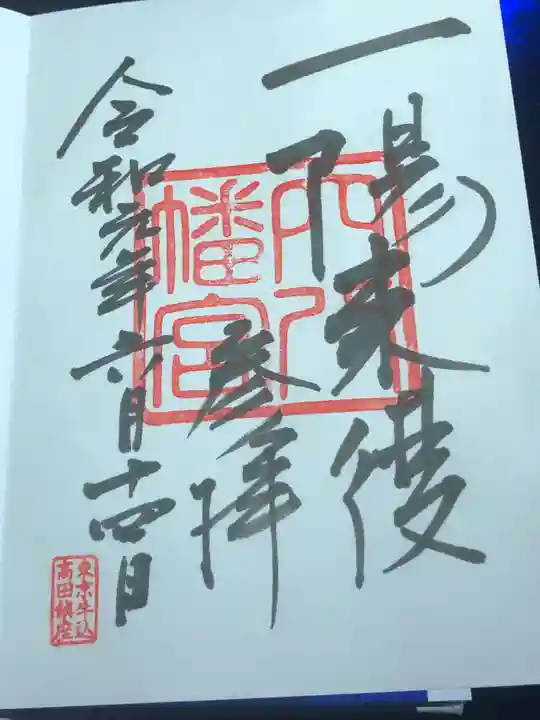 一陽来復
参拝
令和元年六月十四日
穴八
幡宮
東京牛込
高田鎮座